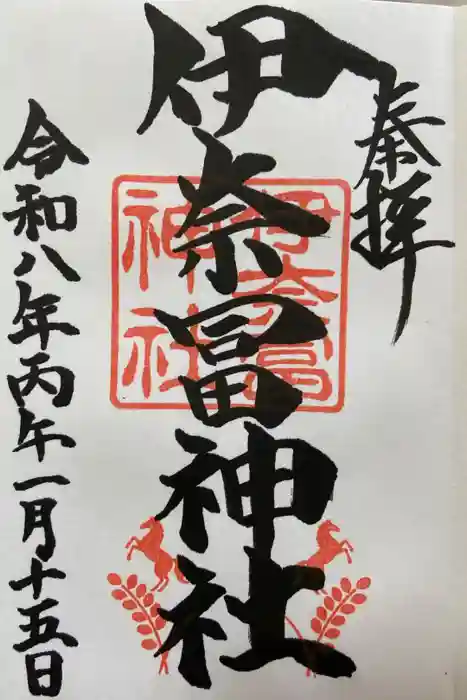 奉拝
伊奈冨神社
伊奈冨
神社
令和八年丙午一月十五日